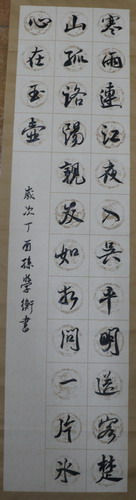 寒雨連江夜入吳平明送客楚
山孤洛陽親友如相問一片冰
心在玉壺
歲次丁酉孫學衛書